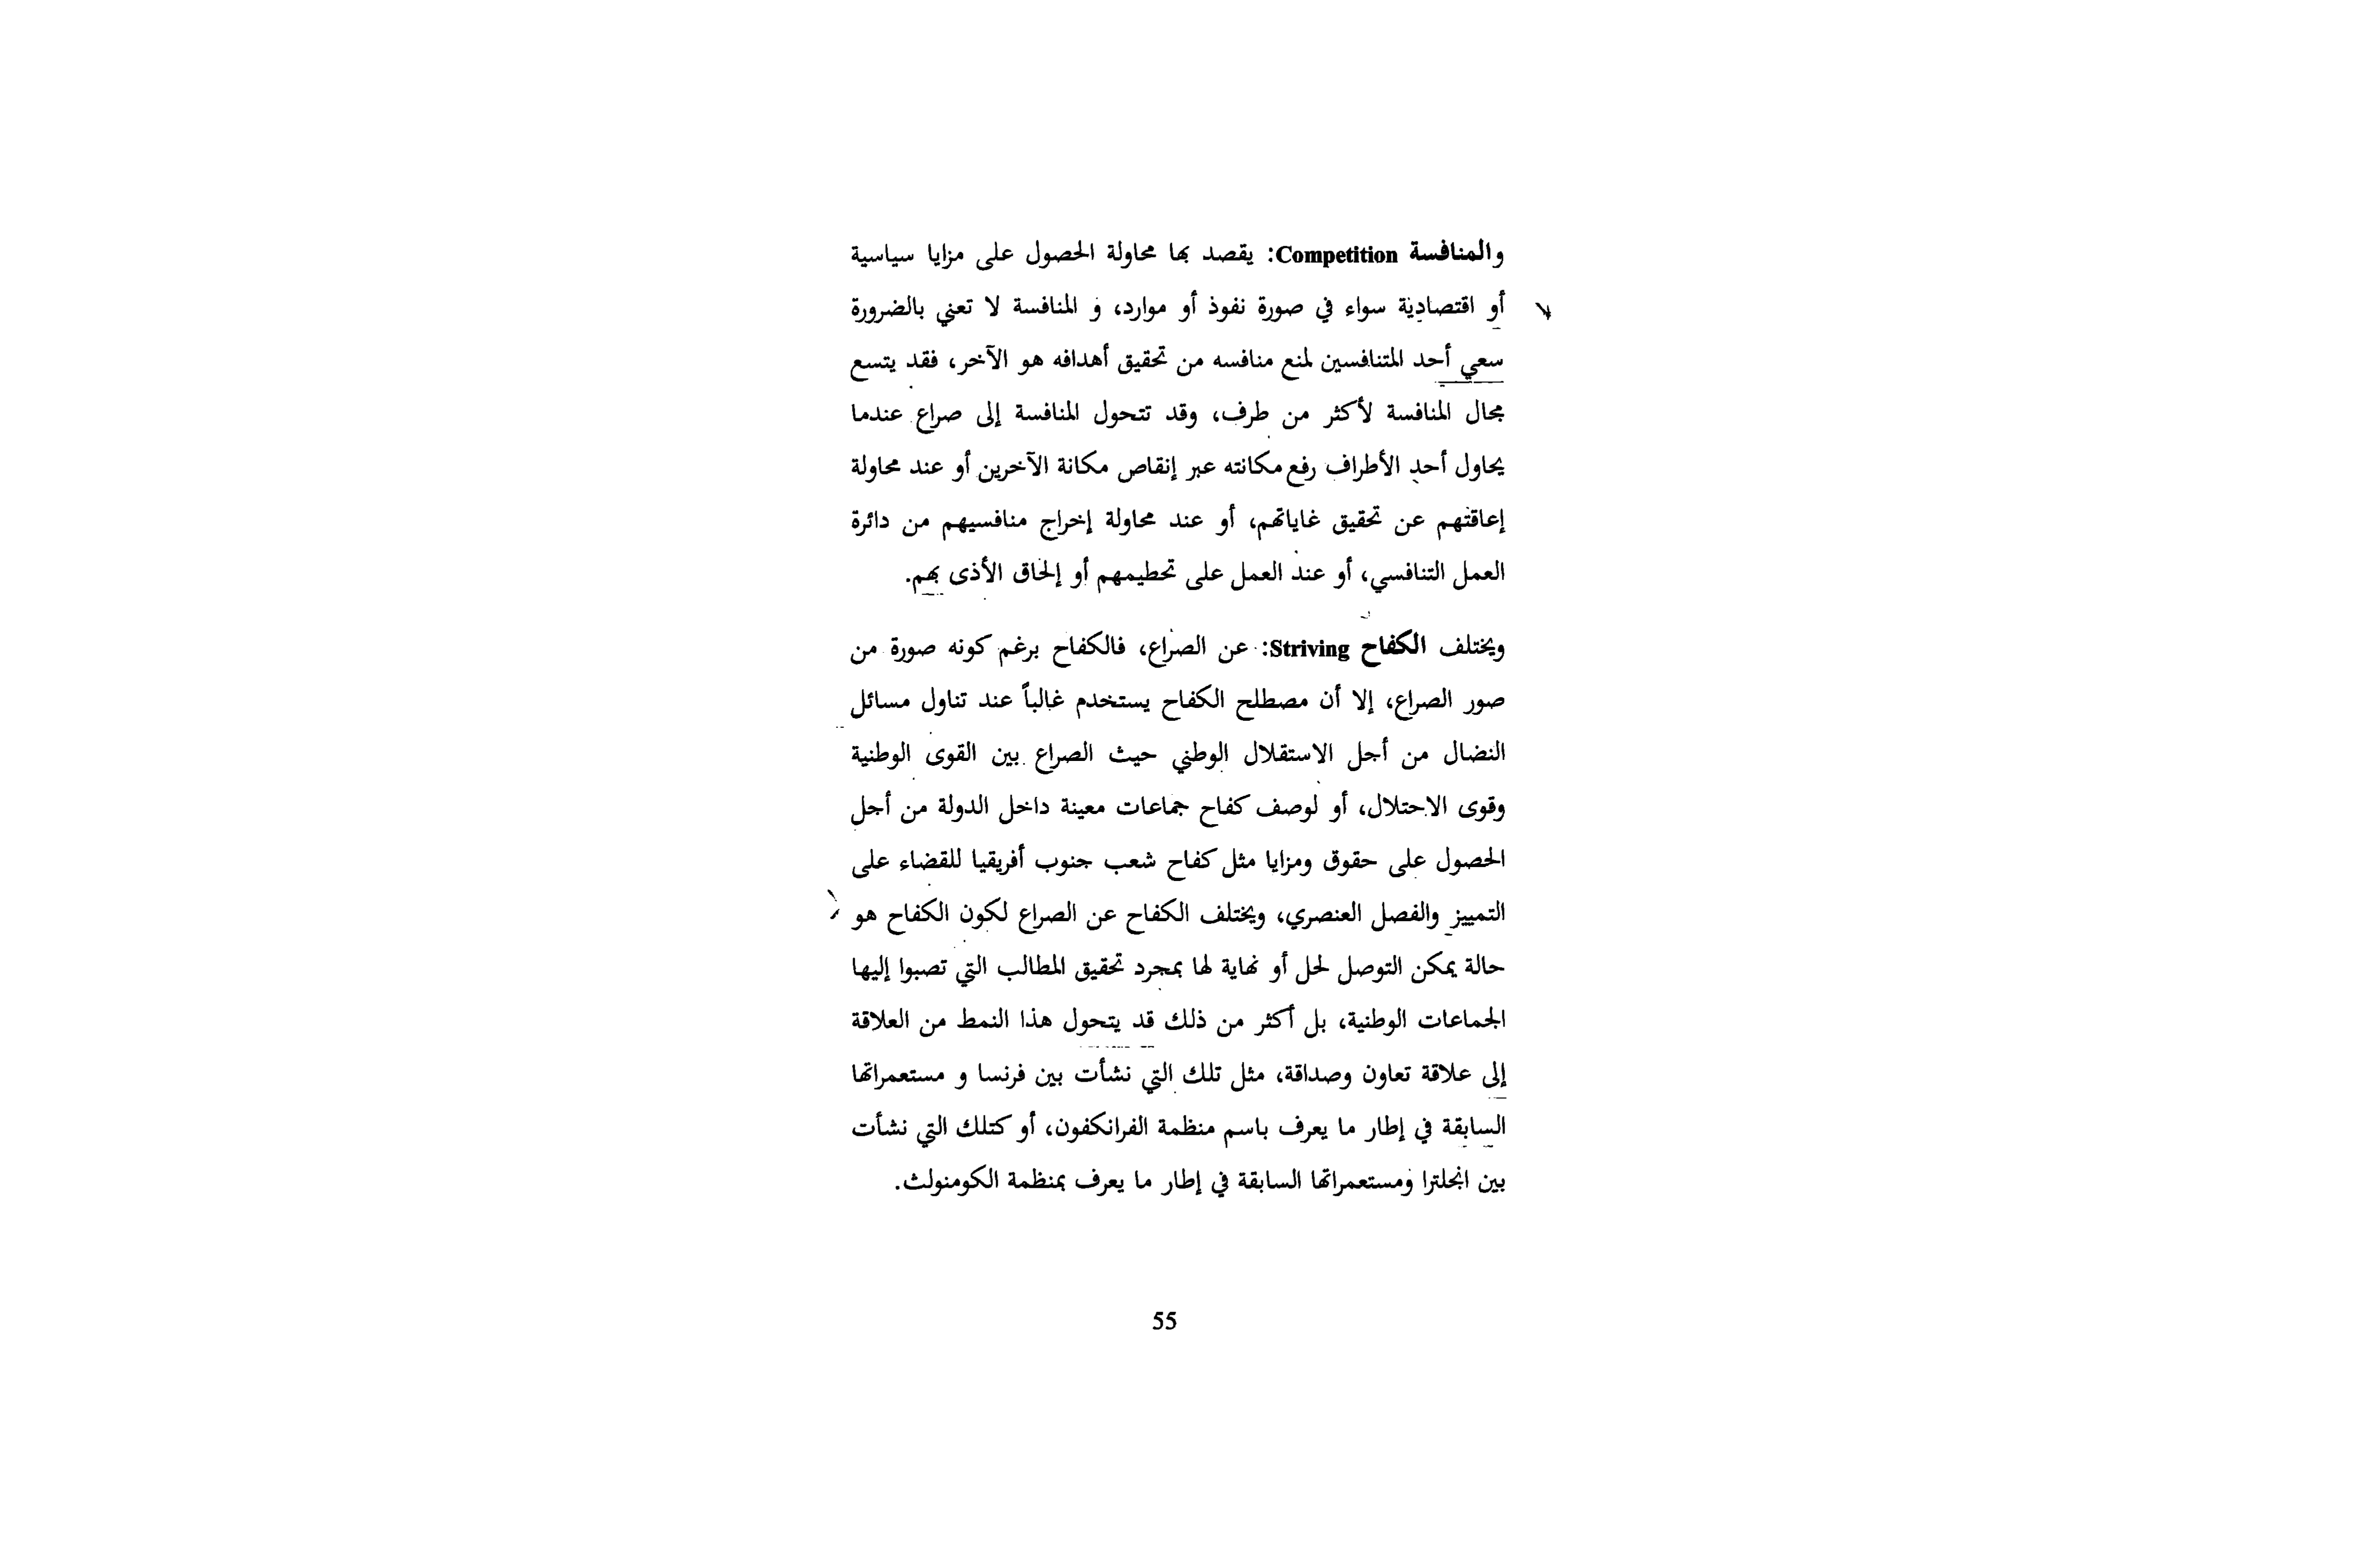 والمنافسة Competition: يقصد بها محاولة الحصول على مزايا سياسية
أو اقتصادية سواء في صورة نفوذ أو موارد، و المنافسة لا تعني بالضرورة
سعي أحد المتنافسين لمنع منافسه من تحقيق أهدافه هو الآخر، فقد يتسع
مجال المنافسة لأكثر من طرف، وقد تتحول المنافسة إلى صراع عندما
يحاول أحد الأطراف رفع مكانته عبر إنقاص مكانة الآخرين أو عند محاولة
إعاقتهم عن تحقيق غاياتهم، أو عند محاولة إخراج منافسيهم من دائرة
العمل التنافسي، أو عند العمل على تحطيمهم أو إلحاق الأذى بهم.
ويختلف الكفاح Striving: عن الصراع، فالكفاح برغم كونه صورة من
صور الصراع، إلا أن مصطلح الكفاح يستخدم غالباً عند تناول مسائل
النضال من أجل الاستقلال الوطني حيث الصراع بين القوى الوطنية
وقوى الاحتلال، أو لوصف كفاح جماعات معينة داخل الدولة من أجل
الحصول على حقوق ومزايا مثل كفاح شعب جنوب أفريقيا للقضاء على
التمييز والفصل العنصري، ويختلف الكفاح عن الصراع لكون الكفاح هو
حالة يمكن التوصل لحل أو نهاية لها بمجرد تحقيق المطالب التي تصبوا إليها
الجماعات الوطنية، بل أكثر من ذلك قد يتحول هذا النمط من العلاقة
إلى علاقة تعاون وصداقة، مثل تلك التي نشأت بين فرنسا و مستعمراتها
السابقة في إطار ما يعرف باسم منظمة الفرانكفون، أو كتلك التي نشأت
بين انجلترا ومستعمراتها السابقة في إطار ما يعرف بمنظمة الكومنولث.
55